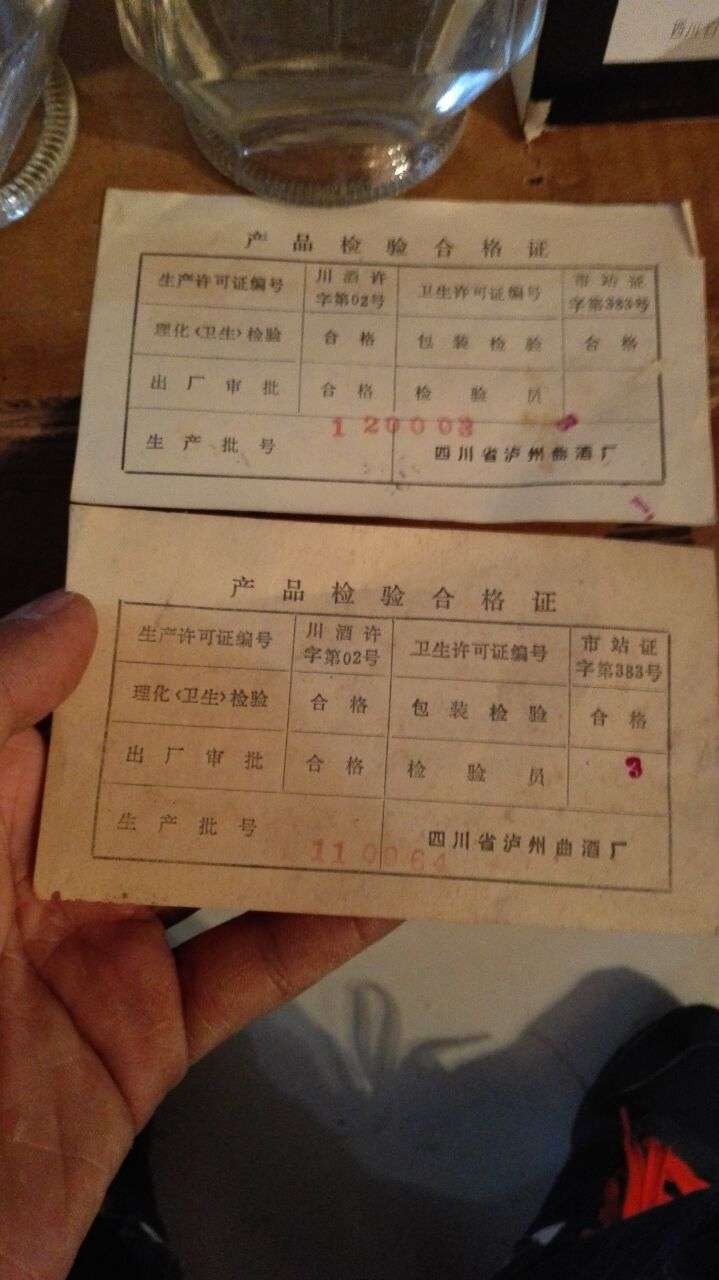 四川省
产品检验合格证
生产许可证编号 川酒许字第02号 卫生许可证编号 市站证字第383号
理化(卫生)检验 合格 包装检验 合格
出厂审批 合格 检验员
生产批号 120003 四川省泸州曲酒厂
产品检验合格证
生产许可证编号 川酒许字第02号 卫生许可证编号 市站证字第383号
理化(卫生)检验 合格 包装检验 合格
出厂审批 合格 检验员 3
生产批号 110064 四川省泸州曲酒厂